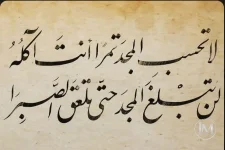 لا تحسب المجد تمرًا أنت آكلُهُ
لن تبلغَ المجدَ حتّى تلعَقَ الصَّبِرَا